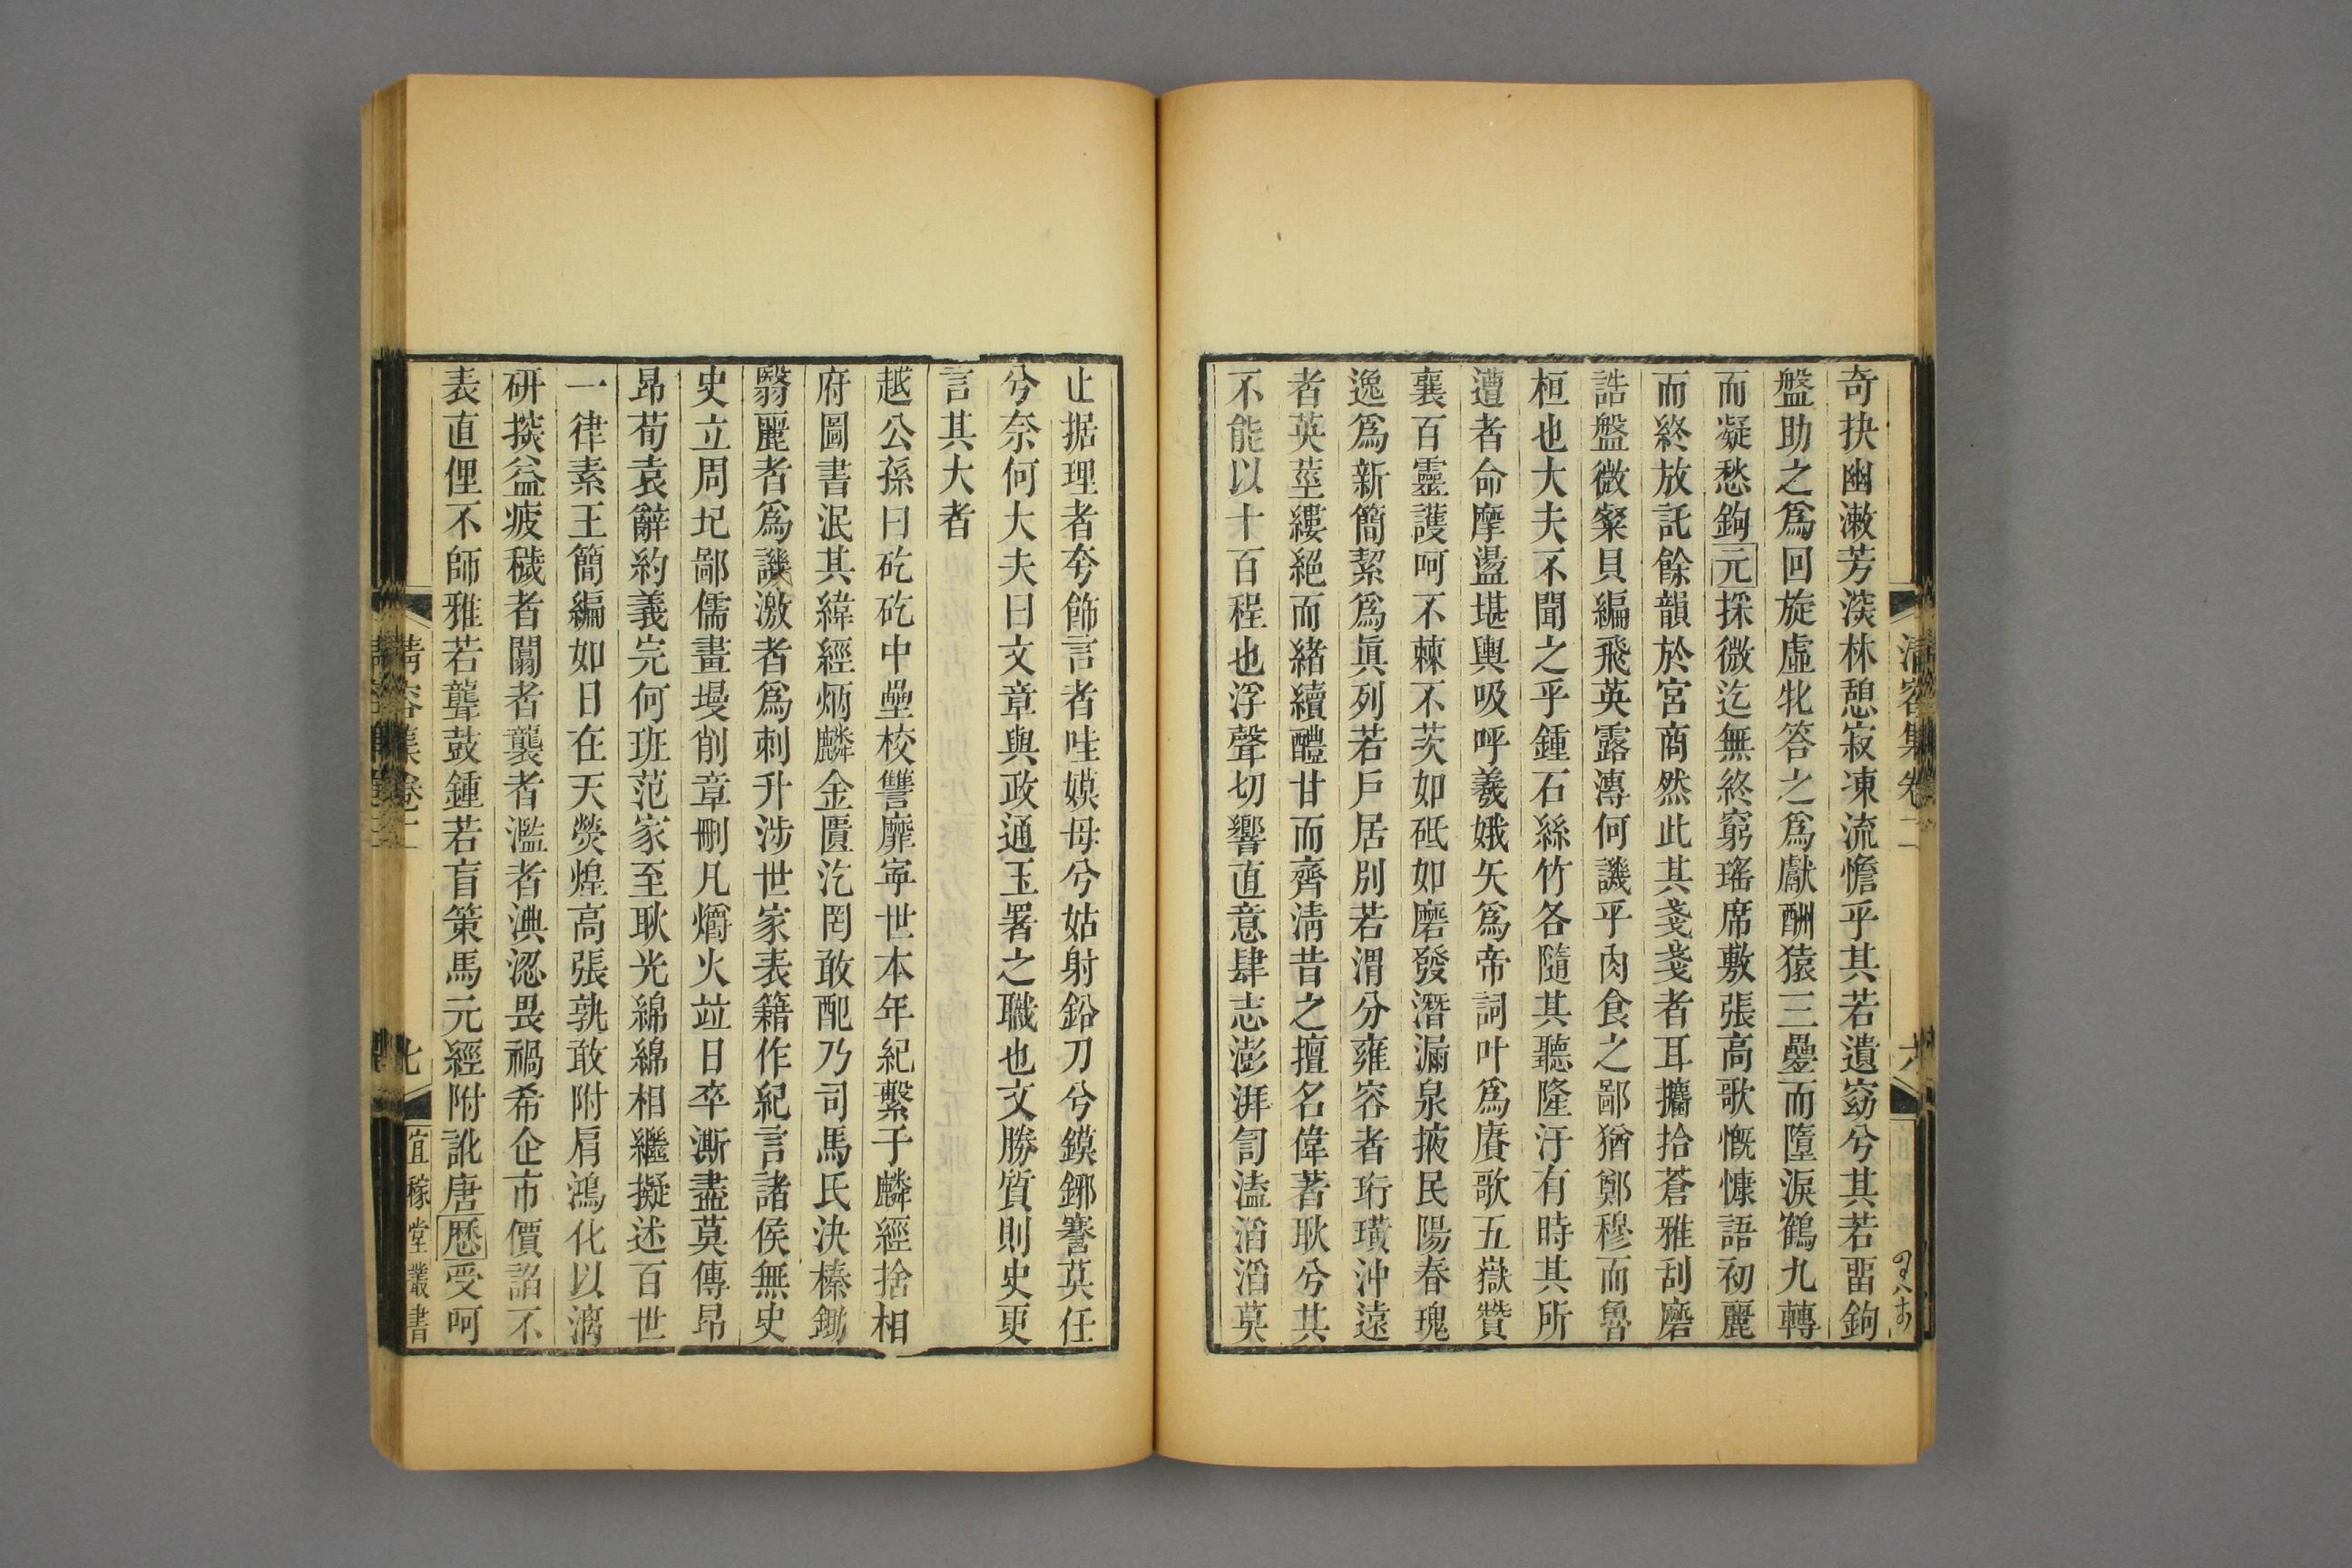 奇抉幽漱芳漢林憩寂凍流憺乎其若遺窈兮其若畱鉤
盤助之爲回旋虛牝答之爲獻酬猿三疊而墮淚鶴九轉
而凝愁鉤元探微迄無終窮瑤席敷張高歌慨慷語初麗
而終放託餘韻於宮商然此其戔戔者耳攟拾蒼雅刮磨
誥盤微粲貝編飛英露漙何譏乎肉食之鄙猶鄭穆而魯
桓也大夫不聞之乎鍾石絲竹各隨其聽隆汙有時其所
遭者命摩盪堪輿吸呼羲娥矢爲帝詞叶爲賡歌五嶽贊
襄百靈護呵不棘不茨如砥如磨發潛漏泉掖民陽春瑰
逸爲新簡絜爲眞列若戶居別若渭分雍容者珩璜沖遠
者英莖縷絕而緒續醴甘而齊淸昔之擅名偉著耿兮其
不能以十百程也浮聲切響直意肆志澎湃訇溘滔滔莫
清容集卷二
六
止据理者夸飾言者哇嫫母兮姑射鉛刀兮鏌鋣謇莫任
兮奈何大夫曰文章與政通玉署之職也文勝質則史更
言其大者
越公孫曰矻矻中壘校讐靡寧世本年紀繫于麟經捨相
府圖書泯其緯經炳麟金匱汔罔敢配乃司馬氏決榛鋤
翳麗者爲譏激者爲刺升涉世家表籍作紀言諸侯無史
史立周圮鄙儒畫墁削章刪凡爝火竝日卒澌盡莫傳昂
昂荀袁辭約義完何班范家至耿光綿綿相繼擬述百世
一律素王簡編如日在天熒煌高張孰敢附肩鴻化以漓
研掞益疲穢者闒者襲者濫者淟涊畏禍希企市價諂不
表直俚不師雅若聾鼓鍾若盲策馬元經附訛唐歷受呵
清容集卷二
七
宜稼堂叢書